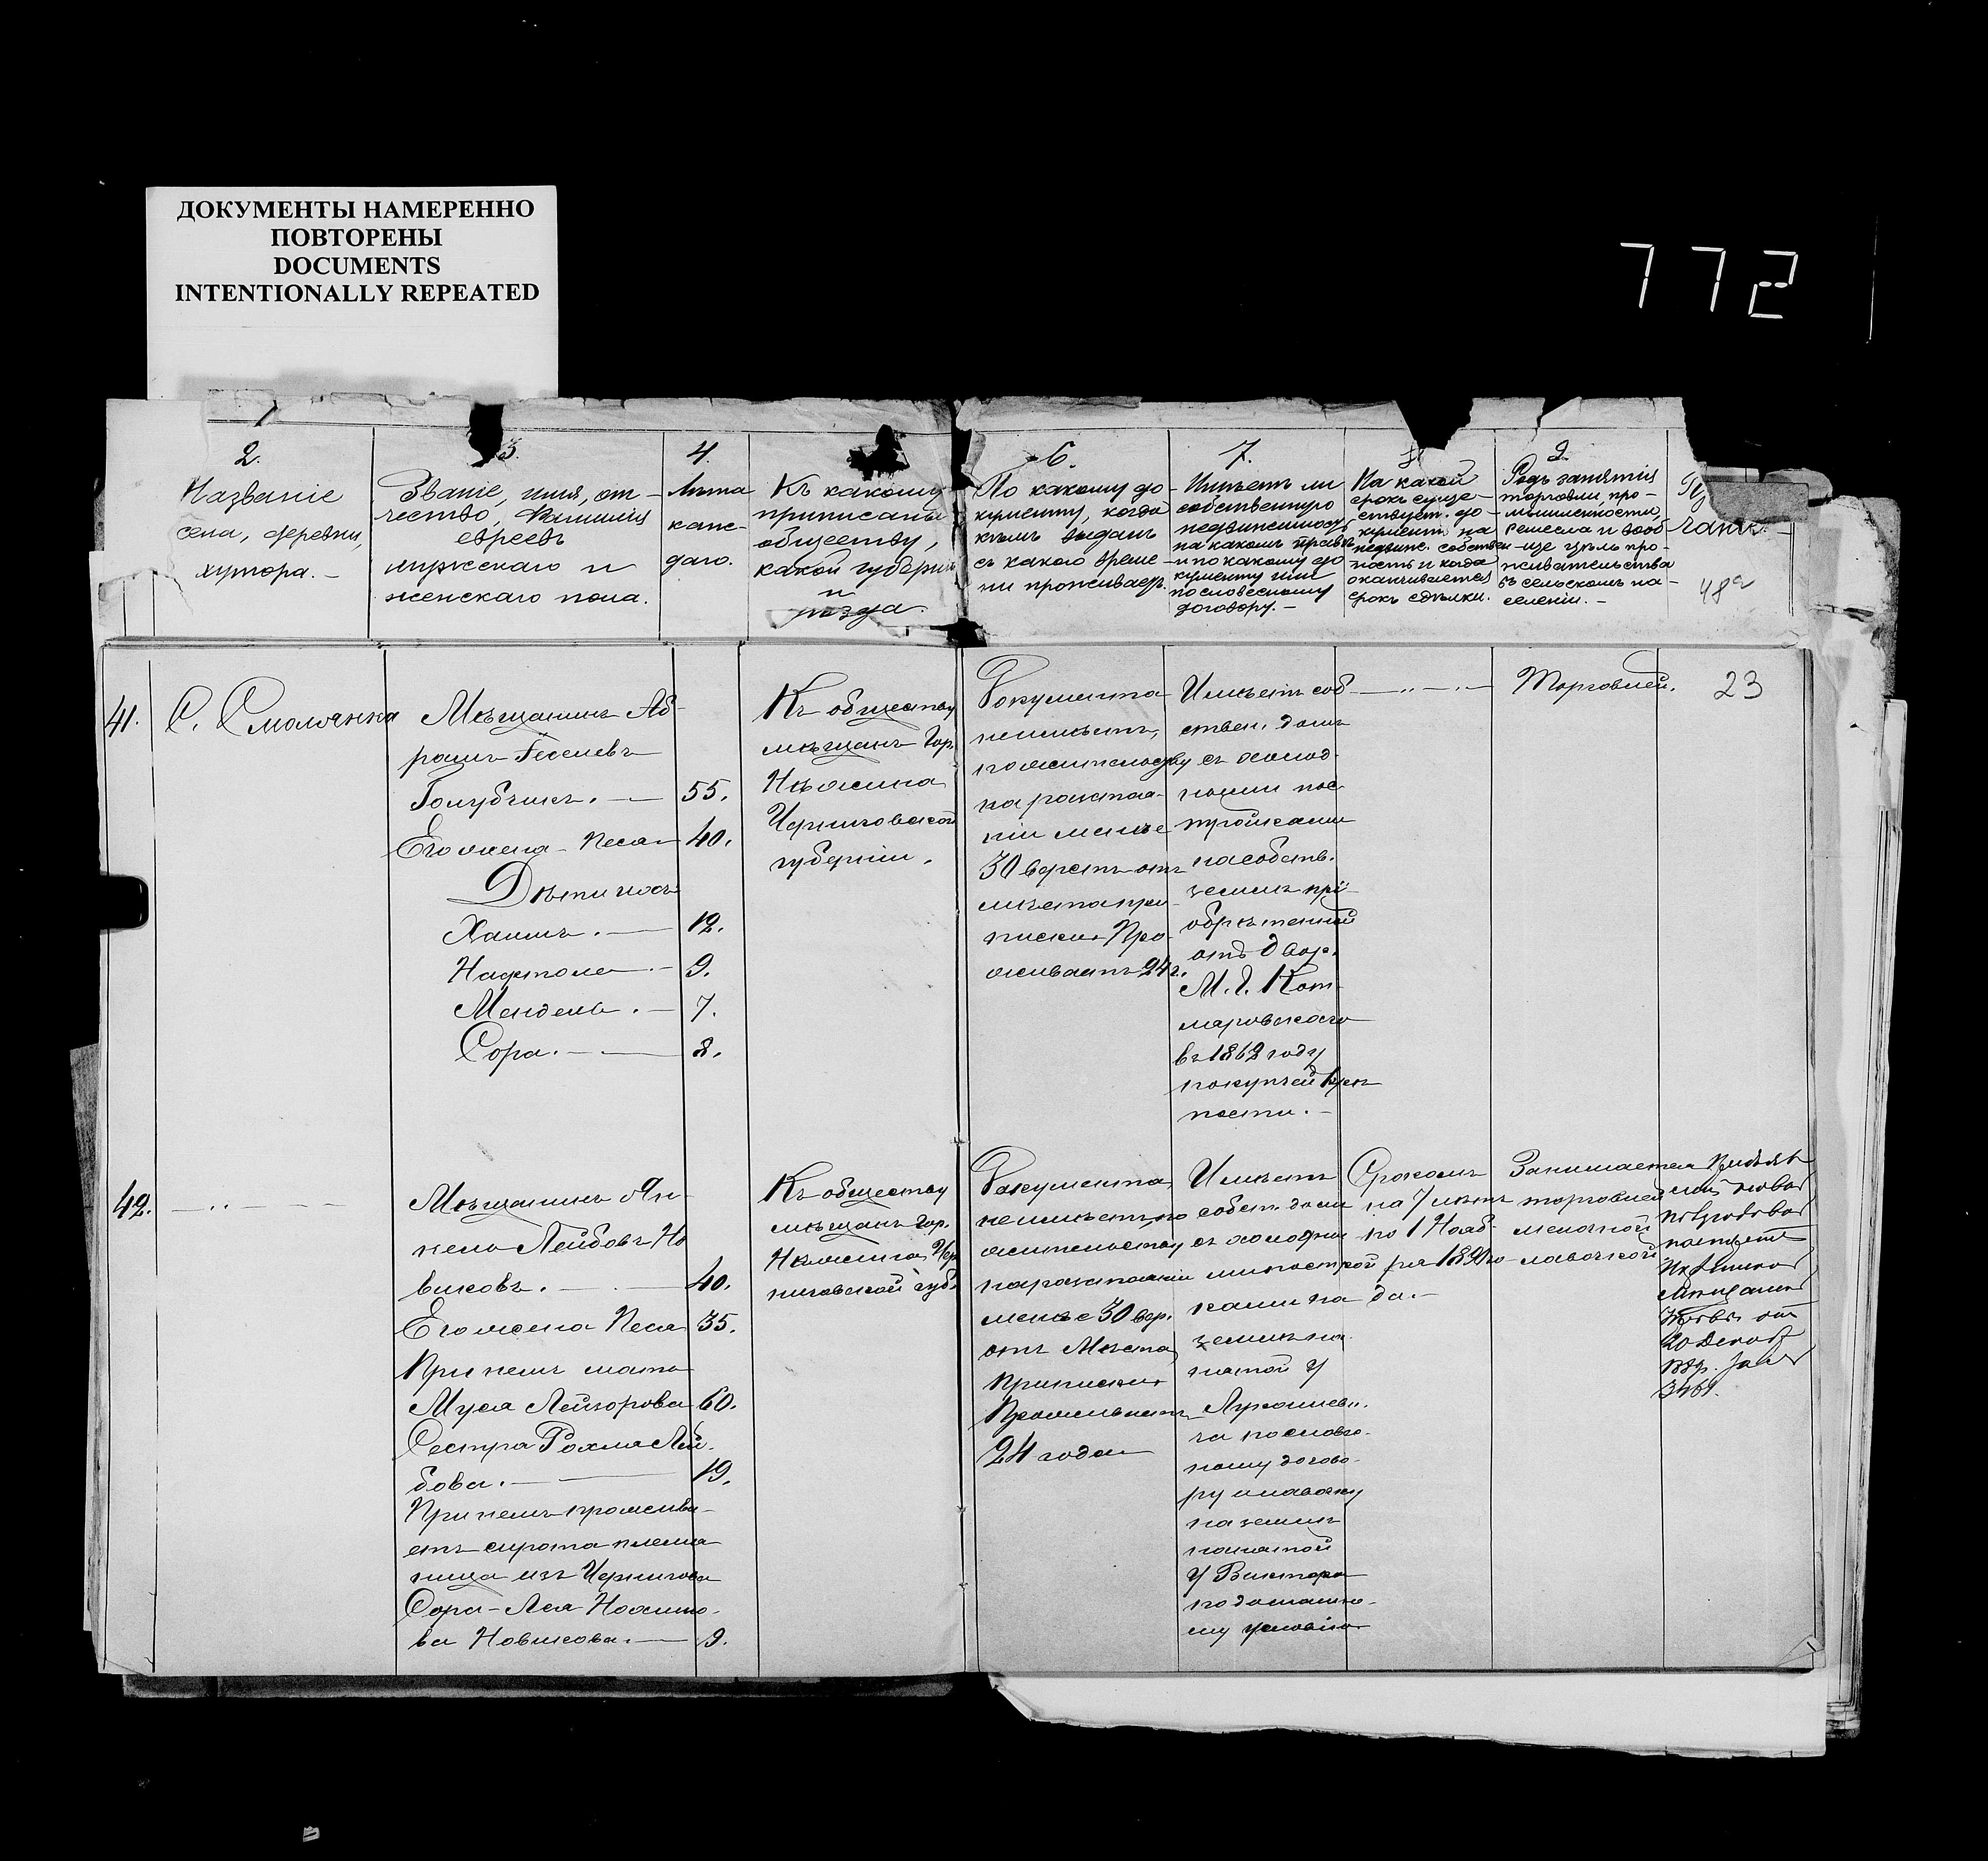 ДОКУМЕНТЫ НАМЕРЕННО
ПОВТОРЕНЫ
DOCUMENTS
INTENTIONALLY REPEATED
772
2.
Названіе
села, деревни,
хутора. –
3.
Званіе, имя, от-
чество, Фамилія
евреевъ
мужескаго и
женскаго пола.
4.
Лѣта
каж-
даго.
Къ какому
приписаны
обществу,
какой губерніи
и
уѣзда.
6.
По какому до-
кументу, когда
кѣмъ выданъ
съ какого време-
ни проживаетъ.
7.
Имѣетъ ли
собственную
недвижимость
на какомъ правѣ
и по какому до
кументу или
по словесному
договору. –
На какой
срокъ суще-
ствуетъ до-
кументъ на
недвиж. собствен
ность и когда
оканчивается
срокъ сдѣлки.
9.
Родъ занятія
торговли, про-
мышленности,
ремесла и вооб-
ще цѣль про-
живательства
въ сельскомъ на-
селеніи. –
48а
23
41.
С. Смолянка
Мѣщанинъ Аб-
рамъ Іоселевъ
Голубчикъ. — 55.
Его жена Песя 40.
Дѣти ихъ
Хаимъ. — 12.
Нафтоле. — 9.
Мендель. — 7.
Сора. — 8.
Къ обществу
мѣщанъ гор.
Нѣжина
Черниговской
губерніи.
Документа
неимѣетъ,
по жительству
на разстоя-
ніи менѣе
30 верстъ отъ
мѣста при-
писки. Про-
живаетъ 24 г.
Имѣетъ соб
ствен. домъ
съ холод-
ными пос
тройками
на собств.
землѣ прі-
обрѣтенной
отъ Двор.
М. Г. Кот-
маровскаго
въ 1862 году
по купчей крѣ
пости. –
— ·· — ·· —
Торговлей.
42.
— ·· — — —
Мѣщанинъ Ян-
кель Лейбовъ Но
виковъ. — 40.
Его жена Песя 35.
При немъ мать
Муся Лейзорова 60.
Сестра Рохля Лей-
бова. — 19.
При немъ прожива-
етъ сирота племя
ница изъ Чернигова
Сора-Лея Нохимо-
ва Новикова. — 9.
Къ обществу
мѣщанъ гор.
Нѣжина Чер
ниговской губ.
Документа
неимѣетъ, по
жительству
на разстояніи
менѣе 30 вер.
отъ Мѣста
приписки.
Проживаетъ
24 года
Имѣетъ
собст. домъ
съ холодны
ми построй
ками на
землѣ на
нятой у
Лукашеви-
ча по словес-
ному догово-
ру и лавочку
на землѣ
нанятой
у Виктора
по домашне-
му условію
Срокомъ
на 7 лѣтъ
по 1 Нояб-
ря 1890 го-
да. –
Занимается
торговлей
мелочной
лавочкой
отъ
20 Декабр